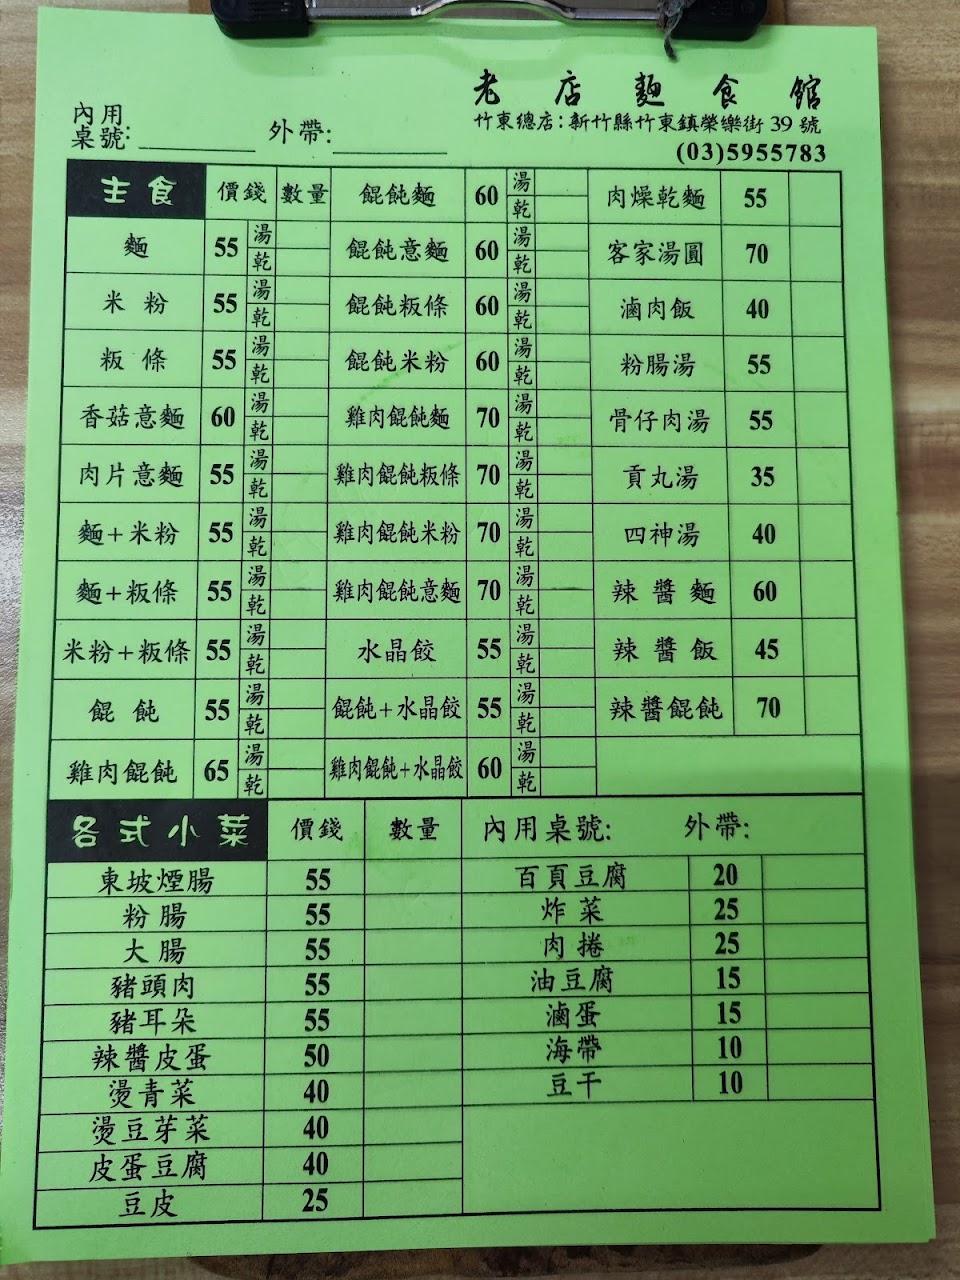 老店麵食館
內用
桌號: 外帶:
竹東總店:新竹縣竹東鎮榮樂街39號
(03)5955783
主食 價錢 數量 餛飩麵 60 湯 乾 肉燥乾麵 55
麵 55 湯 乾 餛飩意麵 60 湯 乾 客家湯圓 70
米粉 55 湯 乾 餛飩粄條 60 湯 乾 滷肉飯 40
粄條 55 湯 乾 餛飩米粉 60 湯 乾 粉腸湯 55
香菇意麵 60 湯 乾 雞肉餛飩麵 70 湯 乾 骨仔肉湯 55
肉片意麵 55 湯 乾 雞肉餛飩粄條 70 湯 乾 貢丸湯 35
麵+米粉 55 湯 乾 雞肉餛飩米粉 70 湯 乾 四神湯 40
麵+粄條 55 湯 乾 雞肉餛飩意麵 70 湯 乾 辣醬麵 60
米粉+粄條 55 湯 乾 水晶餃 55 湯 乾 辣醬飯 45
餛飩 55 湯 乾 餛飩+水晶餃 55 湯 乾 辣醬餛飩 70
雞肉餛飩 65 湯 乾 雞肉餛飩+水晶餃 60 湯 乾
各式小菜 價錢 數量 內用桌號: 外帶:
東坡煙腸 55 百頁豆腐 20
粉腸 55 炸菜 25
大腸 55 肉捲 25
豬頭肉 55 油豆腐 15
豬耳朵 55 滷蛋 15
辣醬皮蛋 50 海帶 10
燙青菜 40 豆干 10
燙豆芽菜 40
皮蛋豆腐 40
豆皮 25